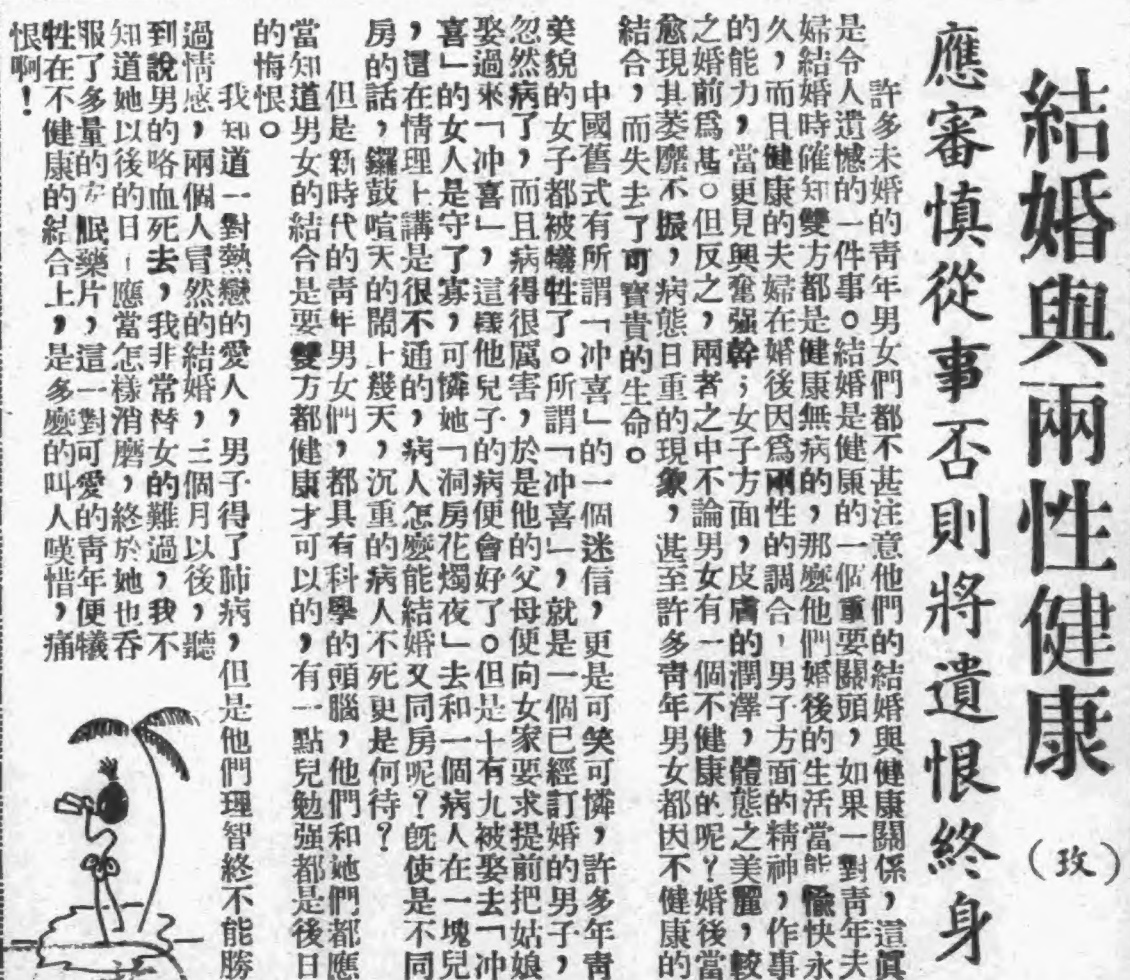 結婚與兩性健康
（玫）
應審慎從事否則將遺恨終身
許多未婚的青年男女們都不甚注意他們的結婚與健康關係，這眞
是令人遺憾的一件事。結婚是健康的一個重要關頭，如果一對青年夫
婦結婚時確知雙方都是健康無病的，那麼他們婚後的生活當能愉快永
久，而且健康的夫婦在婚後因爲兩性的調合，男子方面的精神，作事
的能力，當更見興奮强幹；女子方面，皮膚的潤澤，體態之美麗，較
之婚前爲甚。但反之，兩者之中不論男女有一個不健康的呢？婚後當
愈現其萎靡不振，病態日重的現象，甚至許多青年男女都因不健康的
結合，而失去了可寶貴的生命。
中國舊式有所謂「冲喜」的一個迷信，更是可笑可憐，許多年青
美貌的女子都被犧牲了。所謂「冲喜」，就是一個已經訂婚的男子，
忽然病了，而且病得很厲害，於是他的父母便向女家要求提前把姑娘
娶過來「冲喜」，這樣他兒子的病便會好了。但是十有九被娶去「冲
喜」的女人是守了寡，可憐她「洞房花燭夜」去和一個病人在一塊兒
，這在情理上講是很不通的，病人怎麼能結婚又同房呢？既使是不同
房的話，鑼鼓喧天的鬧上幾天，沉重的病人不死更是何待？
但是新時代的靑年男女們，都具有科學的頭腦，他們和她們都應
當知道男女的結合是要雙方都健康才可以的，有一點兒勉强都是後日
的悔恨。
我知道一對熱戀的愛人，男子得了肺病，但是他們理智終不能勝
過情感，兩個人冒然的結婚，三個月以後，聽
到說男的咯血死去，我非常替女的難過，我不
知道她以後的日，應當怎樣消磨，終於她也呑
服了多量的安眠藥片，這一對可愛的靑年便犧
牲在不健康的結合上，是多麼的叫人嘆惜，痛
恨啊！